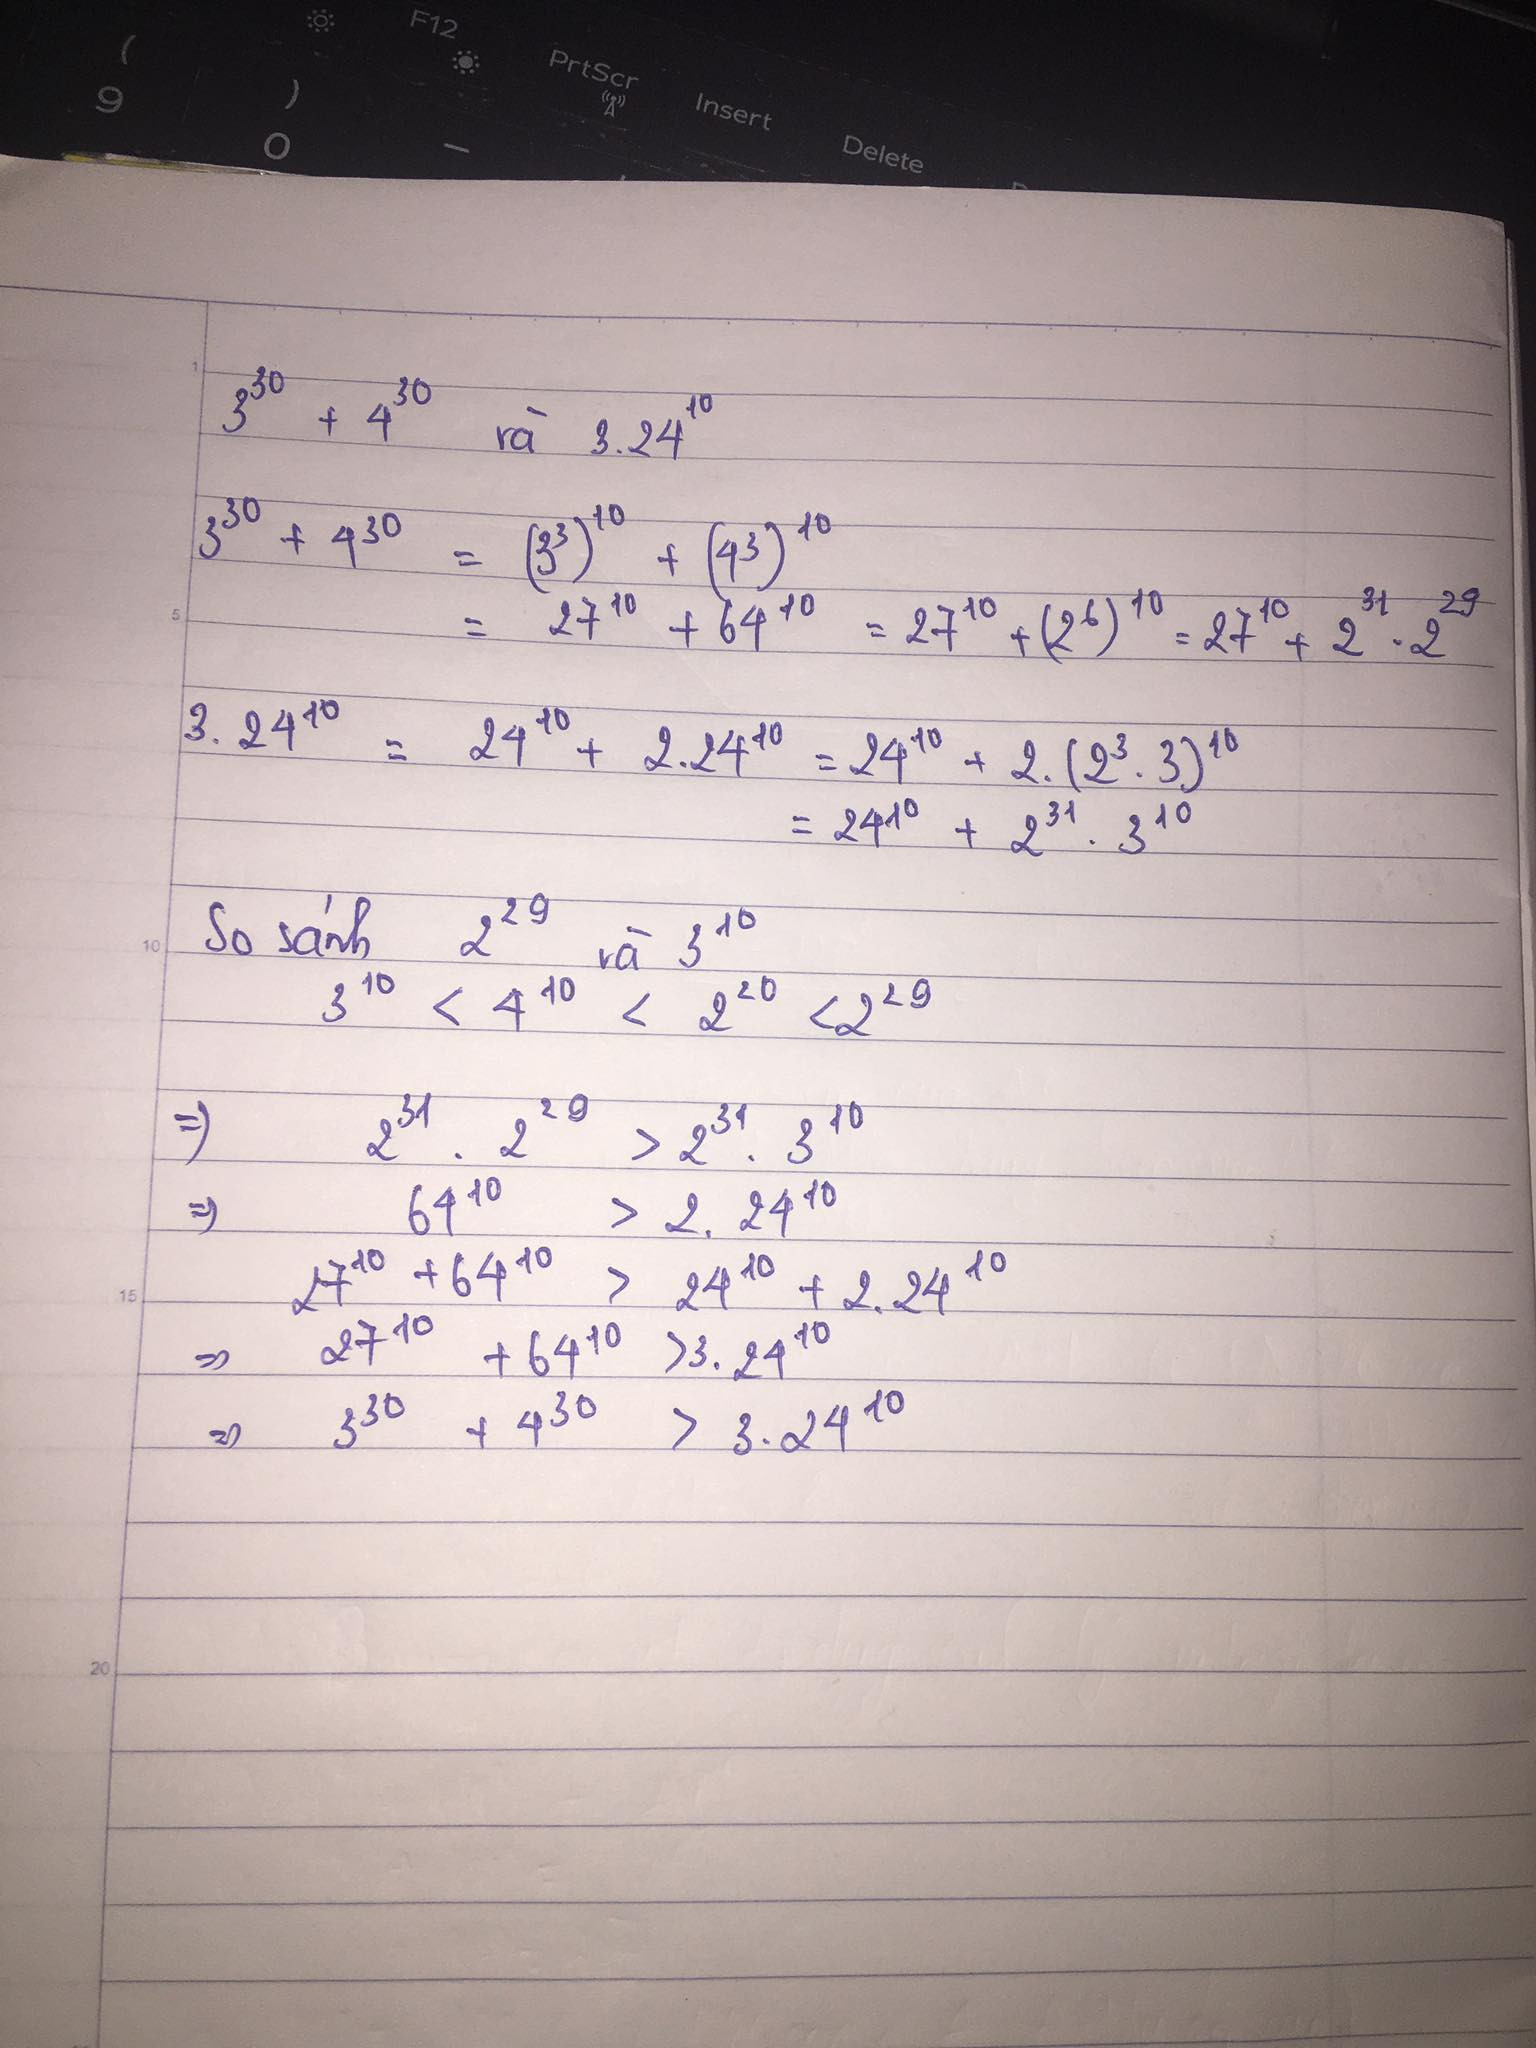 F12
( PrtScr
9 ) Insert
0 - Delete
1
3^30 + 4^30 và 3.24^10
3^30 + 4^30 = (3^3)^10 + (4^3)^10
5
= 27^10 + 64^10 = 27^10 + (2^6)^10 = 27^10 + 2^31 . 2^29
3. 24^10 = 24^10 + 2.24^10 = 24^10 + 2.(2^3 . 3)^10
= 24^10 + 2^31 . 3^10
10
So sánh 2^29 và 3^10
3^10 < 4^10 < 2^20 < 2^29
=) 2^31 . 2^29 > 2^31 . 3^10
=) 64^10 > 2. 24^10
15
27^10 + 64^10 > 24^10 + 2.24^10
=) 27^10 + 64^10 > 3.24^10
=) 3^30 + 4^30 > 3.24^10
20